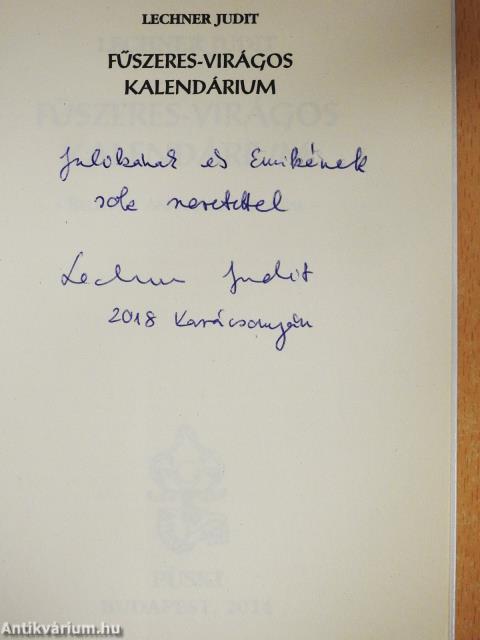 LECHNER JUDIT
FŰSZERES-VIRÁGOS
KALENDÁRIUM
és Emikének
sok szeretettel
Lechner Judit
2018 Karácsonyán
PÜSKI
BUDAPEST, 2014
Antikvárium.hu